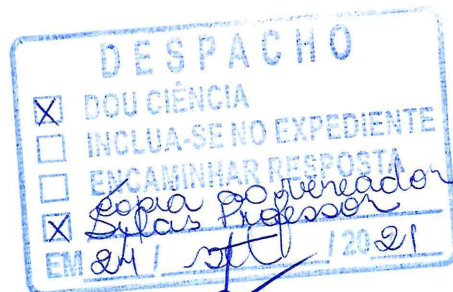 DESPACHO
X DOU CIÊNCIA
INCLUA-SE NO EXPEDIENTE
ENCAMINHAR RESPOSTA
X Cópia ao vereador
Silas Professor
EM 24 / set / 20 21